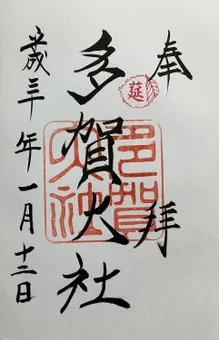 奉拝
莚
多賀大社
多賀大社
三年一月十二日